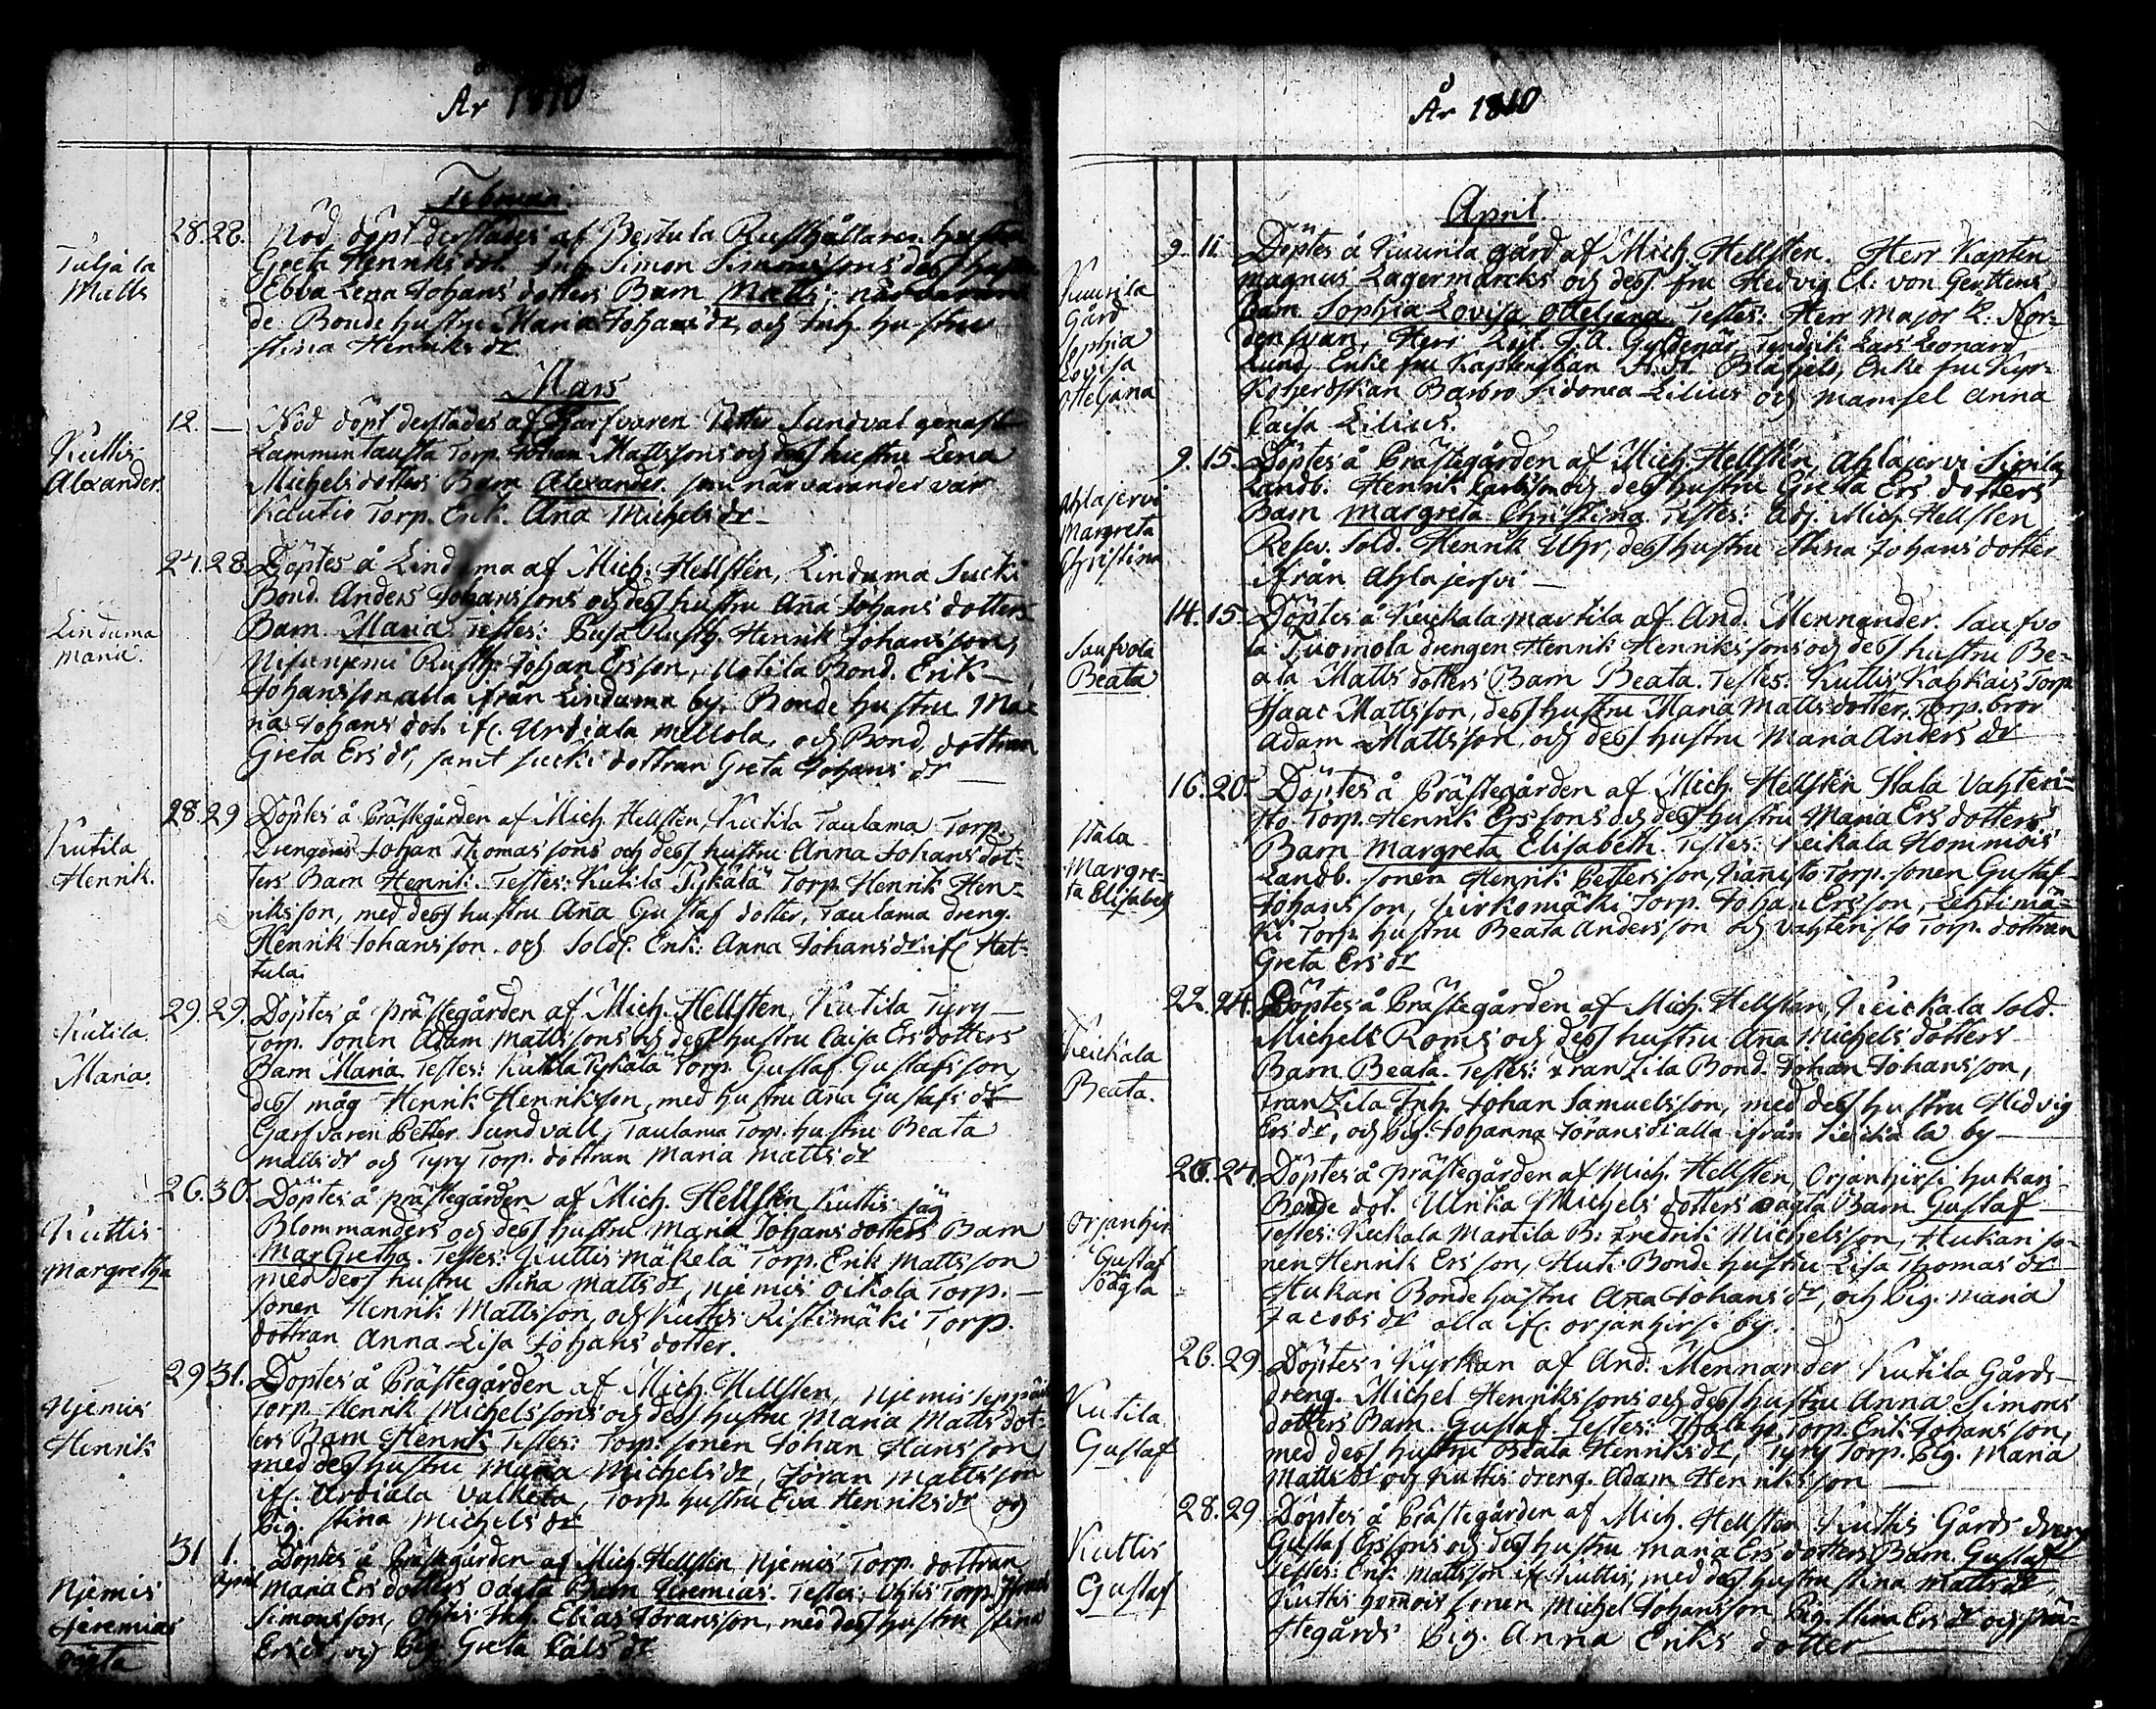 År 1810
Februari
28. 28. Nöd döpt derstädes af Bertula Rusthållaren hustru
Tuljala
Matts
Greta Henriks dot. Inh. Simon Simonssons och dess hustru
Ebba Lena Johans dotters Barn Matts; närvaran
de: Bonde hustru Maria Johans dr, och Inh. hustru
Stina Henriks dr
Mars
Kuttis
Alexander.
12. — Nöd döpt derstädes af Garfvaren Petter Sundval genast
Lammintausta Torp. Johan Mattssons och dess hustru Lena
Michels dotters Barn Alexander. som närvarander var
Torp. Enk. Aña Michels dr
Linduma
Maria.
24. 28. Döptes å Linduma af Mich. Hellsten, Linduma Sucki
Bond. Anders Johanssons och dess hustru Aña Johans dotters
Barn Maria Testes: Rusth. Henrik Johansson,
Rusth. Johan Ersson, Bond. Erik
Johansson alla ifrån Linduma by. Bonde hustru Ma-
ria Johans dot. if. Urdiala Mellola, och Bond. dottran
Greta Ers dr, samt Sucki dottran Greta Johans dr
Kutila
Henrik.
28. 29 Döptes å Prästegården af Mich. Hellsten, Kutila Taulama Torp.
Drengens Johan Thomassons och dess hustru Anna Johans dot-
ters Barn Henrik. Testes: Kutila Pykälä Torp. Henrik Hen-
riksson, med dess hustru Aña Gustaf dotter, Taulama dreng.
Henrik Johansson och Sold. Enk: Anna Johans dr if. Hat-
tula.
Kutila
Maria.
29. 29. Döptes å Prästegården af Mich. Hellsten, Kutila Tyry
Torp. Sonen Adam Mattssons och dess hustru Caisa Ers dotters
Barn Maria Testes: Kutila Pykälä Torp. Gustaf Gustafsson,
dess måg Henrik Henriksson, med hustru Aña Gustafs dr
Garfvaren Petter Sundvall, Taulama Torp. hustru Beata
Matts dr och Tyry Torp. dottran Maria Matts dr
Kuttis
Margretha
26. 30. Döptes å prästegården af Mich. Hellsten Kuttis Jäg
Blommanders och dess hustru Maria Johans dotters Barn
MarGretha. Testes: Kuttis Mäkelä Torp. Erik Mattsson
med dess hustru Stina Matts dr, Njemis Oikola Torp.
sonen Henrik Mattsson, och Kuttis Ristimäki Torp.
dottran Anna Lisa Johans dotter.
Njemis
Henrik
29 31. Döptes å Prästegården af Mich. Hellsten, Njemis
Torp. Henrik Michelssons och dess hustru Maria Matts dot-
ters Barn Henrik Testes: Torp. sonen Johan Hansson,
med dess hustru Maria Michels dr, Jöran Mattsson
if. Urdiala Valketa, Torp. hustru Eva Henriks dr och
Pig. Stina Michels dr
Njemis
Jeremias
oägta
31 1. April Döptes å Prästegården af Mich. Hellsten Njemis Torp. dottran
Maria Ers dotters oägta Barn Jeremias. Testes: Torp.
Simonsson, Inh. Elias Jöransson, med dess hustru Stina
Ers dr, och Pig. Greta Carls dr
År 1810
April
Kuurila
Gård
Sophia
Lovisa
Otteljana
9. 11. Döptes å Kuurila gård af Mich. Hellsten. Herr Kapten
Magnus Lagermarcks och dess fru Hedvig El: von Gerttens
Barn Sophia Lovisa Otteliana. Testes: Herr Major L. Nor-
densvan, Herr Löjt. J. A. Gyldenär, Fendrik Lars Leonard
Lund, Enke fru Kaptenskan Blåfjeld, Enke fru Kyr-
koherdskan Barbro Sidonea Lilius och Mamsel Anna
Caisa Lilius.
Ahlajervi
Margreta
Christina
9. 15. Döptes å Prästegården af Mich. Hellsten, Ahlajervi Sipilä
Landb. Henrik Carlsson och dess hustru Greta Ers dotters
Barn Margreta Christina Testes: Adj. Mich. Hellsten
Reserv. Sold. Henrik Uhr, dess hustru Stina Johans dotter
ifrån Ahlajervi
Saufvola
Beata
14. 15. Döptes å Keickala Martila af And. Mennander. Saufvo
la Tuomola drengen Henrik Henrikssons och dess hustru Be-
ata Matts dotters Barn Beata. Testes: Kuttis Kahkais Torp.
Isaac Mattsson, dess hustru Maria Matts dotter, Torp. bror
Adam Mattsson, och dess hustru Maria Anders dr
Stala
Margre-
ta Elisabeth
16. 20. Döptes å Prästegården af Mich. Hellsten Stala Vahteri-
sto Torp. Henrik Erssons och dess hustru Maria Ers dotters
Barn Margreta Elisabeth. Testes: Keikala Hommois
Landb. sonen Henrik Pettersson, Kañisto Torp. sonen Gustaf
Johansson, Torp. Johan Ersson, Lehtimä-
ki Torp. hustru Beata Andersson och Vahteristo Torp. dottran
Greta Ers dr
Keickala
Beata.
22. 24. Döptes å Prästegården af Mich. Hellsten, Keickala Sold.
Michels Roms och dess hustru Aña Michels dotters
Barn Beata. Testes: Franzila Bond. Johan Johansson,
Franzila Inh. Johan Samuelsson, med dess hustru Hedvig
Ers dr, och Pig. Johanna Jörans dr alla ifrån Keickala by
Orjanhir.
Gustaf
oägta
23. 24. Döptes å Prästegården af Mich. Hellsten, Orjanhirsi Hukari
Bonde dot. Ulrika Michels dotters oägta Barn Gustaf
Testes: Keckala Martila B: Fredrik Michelsson, Hukari so-
nen Henrik Ersson, Huti Bonde hustru Lisa Thomas dr
Hukari Bonde hustru Aña Johans dr, och Pig. Maria
Jacobs dr alla if. Orjanhirsi by.
Kutila
Gustaf
26. 29. Döptes i Kyrkan af And. Mennander Kutila Gårds
dreng. Michel Henrikssons och dess hustru Anna Simons
dotters Barn Gustaf. Testes: Torp. Erik Johansson,
med dess hustru Beata Henriks dr, Tyry Torp. Pig. Maria
Matts dr och Kuttis dreng. Adam Henriksson
Kuttis
Gustaf
28. 29 Döptes å Prästegården af Mich. Hellsten Kuttis Gårds dreng
Gustaf Erssons och dess hustru Maria Ers dotters Barn Gustaf
Testes: Erik Mattsson if. Kuttis, med dess hustru Stina Matts dr,
Kuttis Hom̃ois sonen Michel Johansson Pig. Stina Ers dr och Prä-
stegårds Pig. Anna Eriks dotter